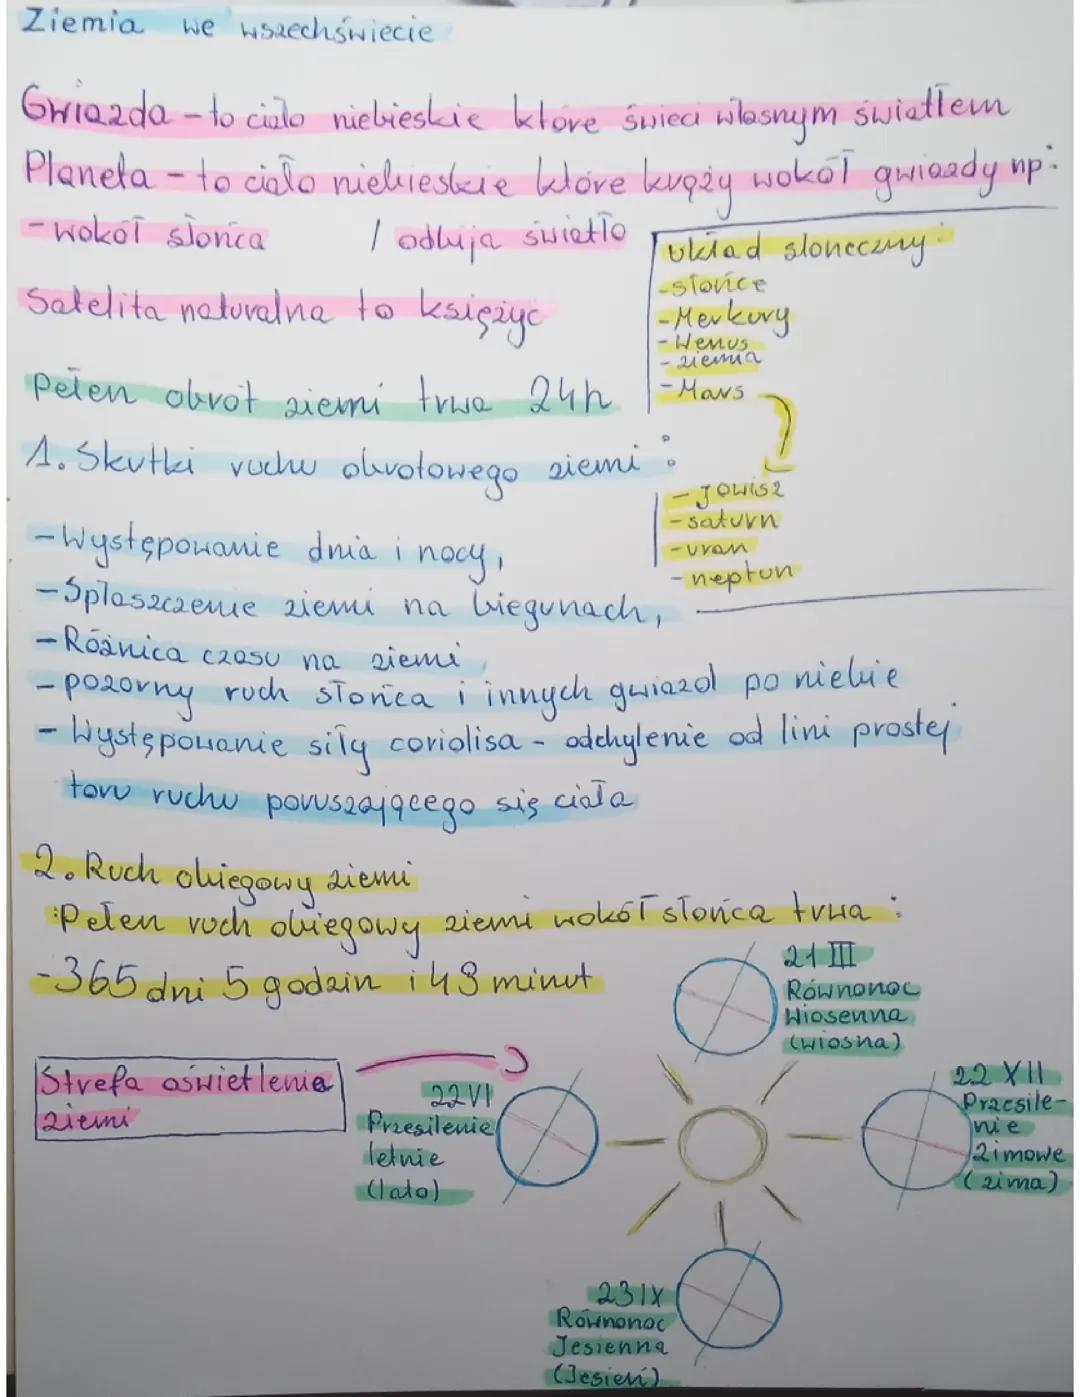 Ziemia we wszechświecie
Gwiazda - to ciało niebieskie które świeci własnym światłem
Planeta - to ciało niebieskie które krąży wokół gwiazdy np:
- wokół słońca / odbija światło
Satelita naturalna to księżyc
Układ słoneczny:
- słońce
- Merkury
- Wenus
- ziemia
- Mars
- Jowisz
- saturn
- uran
- neptun
Pełen obrót ziemi trwa 24h
1. Skutki ruchu obrotowego ziemi:
- Występowanie dnia i nocy,
- Spłaszczenie ziemi na biegunach,
- Różnica czasu na ziemi,
- pozorny ruch słońca i innych gwiazd po niebie
- Występowanie siły coriolisa - odchylenie od lini prostej
toru ruchu poruszającego się ciała
2. Ruch obiegowy ziemi
:Pełen ruch obiegowy ziemi wokół słońca trwa:
- 365 dni 5 godzin i 49 minut
Strefa oświetlenia
ziemi
21 III
Równonoc
Wiosenna
(wiosna)
22 VI
Przesilenie
letnie
(lato)
22 XII
Przesile-
nie
zimowe
(zima)
23 IX
Równonoc
Jesienna
(Jesień)